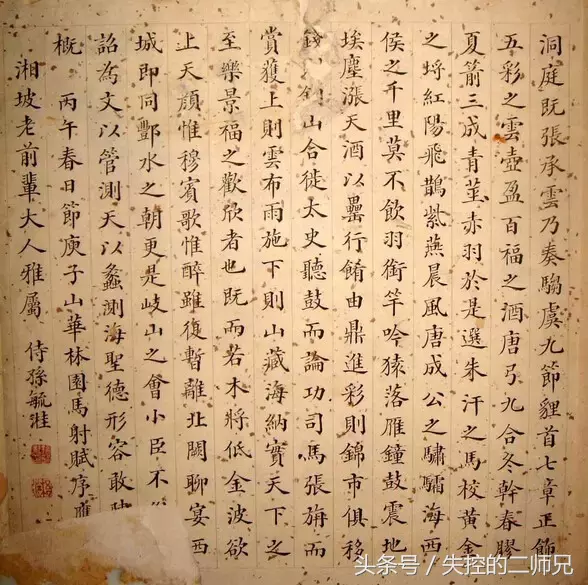 洞庭既張承雲乃奏騶虞九節貍首七章正飾
五彩之雲壺盈百福之酒唐弓九合冬幹春膠
夏箭三成青莖赤羽於是選朱汗之馬校黃金
之埒紅陽飛鵲紫燕晨風唐成公之驌驦海西
侯之千里莫不飲羽銜竿吟猿落雁鐘鼓震地
埃塵漲天酒以罍行餚由鼎進彩則錦市俱移
錢山合徙太史聽鼓而論功司馬張旃而
賞獲上則雲布雨施下則山藏海納實天下之
至樂景福之歡欣者也既而若木將低金波欲
上天顏惟穆賓歌惟醉雖復暫離北闕聊宴西
城即同酆水之朝更是岐山之會小臣不
詔為文以管測天以蠡測海聖德形容敢
概 丙午春日節庾子山華林園馬射賦序應
湘坡老前輩大人雅屬 侍孫毓溎
头条号/失控的二师兄